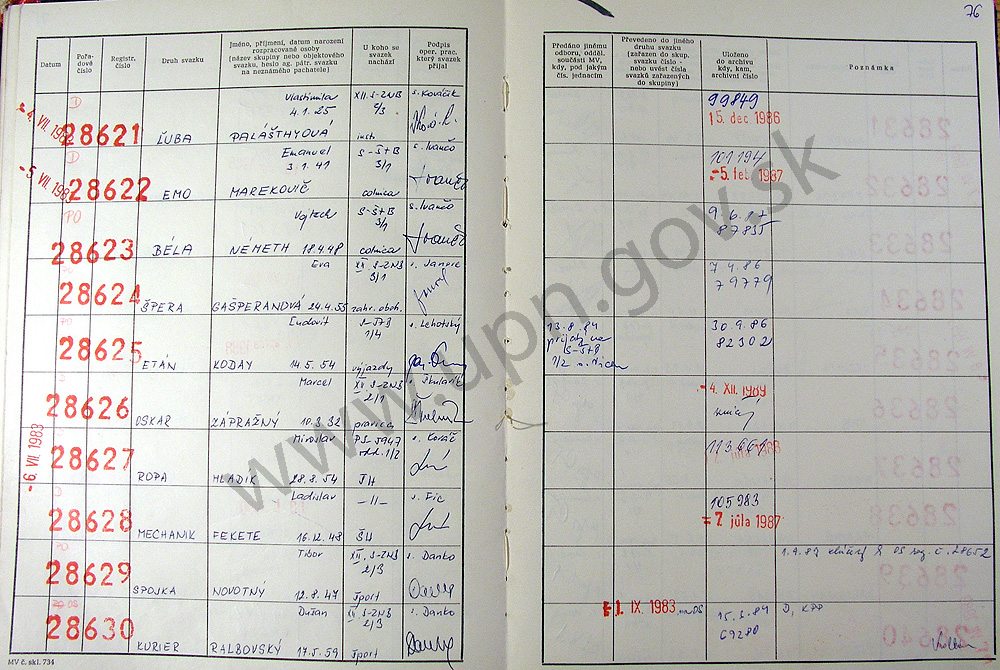 76
Datum
Pořadové číslo
Registr. číslo
Druh svazku
Jméno, příjmení, datum narození
rozpracované osoby
(název skupiny nebo objektového
svazku, heslo ag. pátr. svazku
na neznámého pachatele)
U koho se
svazek
nachází
Podpis
oper. prac.
který svazek
přijal
Předáno jinému
odboru, odděl.
součásti MV,
kdy, pod jakým
čís. jednacím
Převedeno do jiného
druhu svazku
(zařazen do skup.
svazku číslo -
nebo uvést čísla
svazků zařazených
do skupiny)
Uloženo
do archívu
kdy, kam,
archivní číslo
Poznámka
D Vlastimila XII. S-ZNB s. Kováčik 99849
28621 ĽUBA PALÁŠTHYOVÁ 4.1.25 15. dec 1986
D Emanuel S-ŠtB s. Ivančo 101194
28622 EMO MAREKOVIČ 3.1.41 3/1 colnica -5. feb. 1987
PO Vojtech S-ŠtB s. Ivančo
28623 BÉLA NÉMETH 18.4.48 3/1 colnica 87835
Eva XII. S-ZNB 7.4.86
28624 ŠPERA GAŠPERANOVÁ 24.4.55 zahr. oboh. 79779
PO Ľudovít 1/4 s. Lehotský 13.8.84 30.9.86
28625 ETÁN KODAY 14.5.54 výjazdy S-ŠtB 82302
Marcel 2/1 -4. XII. 1989
28626 OSKAR ZÁPRAŽNÝ 10.3.32 pravica
-6. VII. 1983
Miroslav s. Kováč
28627 ROPA MLADÍK 28.8.54 ŠH
D Ladislav -II- s. Fic 105983
28628 MECHANIK FEKETE 16.12.48 ŠH 7. júla 1987
PO Tibor XII. S-ZNB s. Danko č. 28652
28629 SPOJKA NOVOTNÝ 12.8.47 2/3 šport
Dušan XII S-ZNB s. Danko 1. IX. 1983 15.3.84 D, KPP
28630 KURIER RALBOVSKÝ 17.5.59 2/3 šport 69280
MV č. skl. 734
www.upn.gov.sk